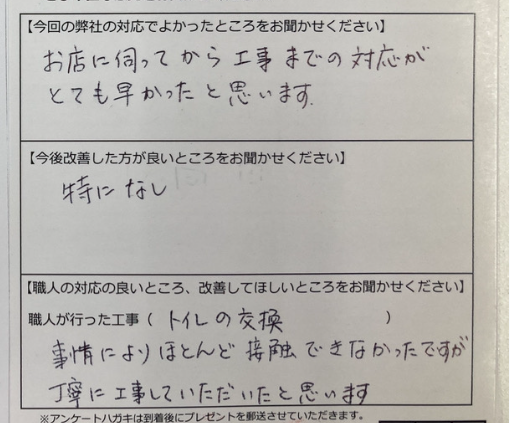 【今回の弊社の対応でよかったところをお聞かせください】
お店に伺ってから工事までの対応が
とても早かったと思います.
【今後改善した方が良いところをお聞かせください】
特になし
【職人の対応の良いところ、改善してほしいところをお聞かせください】
職人が行った工事（ トイレの交換 ）
事情によりほとんど接触できなかったですが
丁寧に工事していただいたと思います
※アンケートハガキは到着後にプレゼントを郵送させていただきます。